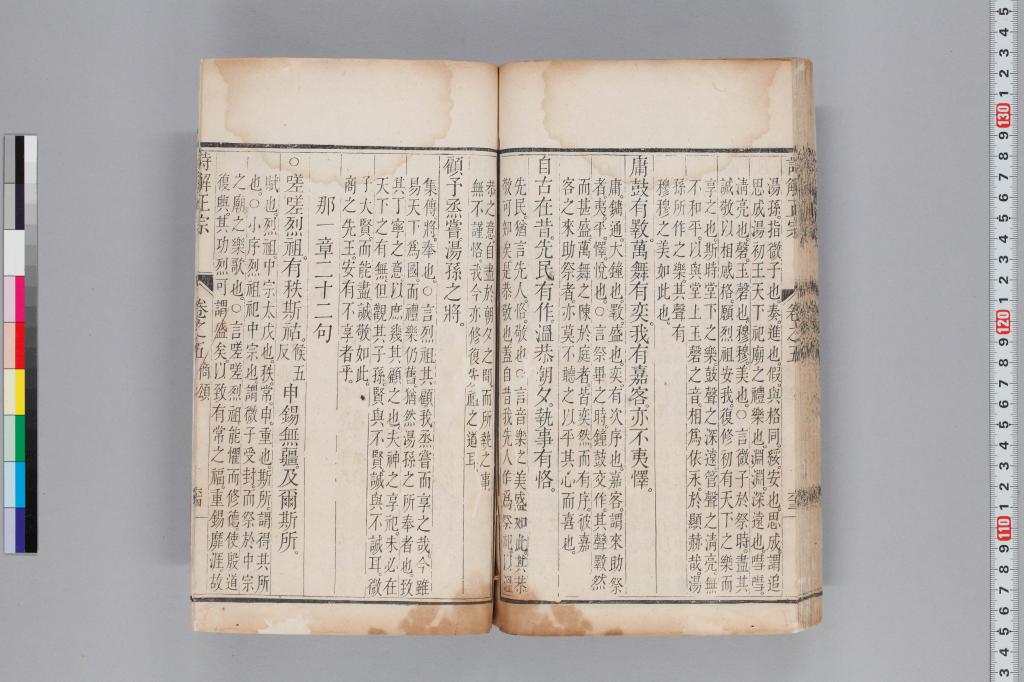 詩解正宗　卷之五
湯孫。指微子也。奏。進也。假與格同。綏。安也。思成。謂追
思成湯。初王天下祀廟之禮樂也。淵淵。深遠也。嘒嘒。
淸亮也。磬。玉磬也。穆穆。美也。○言微子於祭時。盡其
誠敬以相感格。願烈祖安我復修初有天下之樂而
享之也。斯時堂下之樂。鼓聲之深遠。管聲之淸亮。無
不和平。以與堂上玉磬之音相爲依永。於顯赫哉。湯
孫所作之樂。其聲有
穆穆之美如此也。
庸鼓有斁。萬舞有奕。我有嘉客。亦不夷懌。
庸鏞通。大鐘也。斁。盛也。奕。有次序也。嘉客。謂來助祭
者。夷。平。懌。悅也。○言祭畢之時。鐘鼓交作。其聲斁然
而甚盛。萬舞之陳於庭者。皆奕然而有序。彼嘉
客之來助祭者。亦莫不聽之以平其心而喜也。
自古在昔。先民有作。溫恭朝夕。執事有恪。
先民。猶言先人。恪。敬也。○言音樂之美盛如此。其恭
敬可知矣。是恭敬也。蓋自昔我先人作爲祭祀。以溫
恭之意。自盡於朝夕之間。而所執之事。
無不謹恪。我今亦修復先祖之道耳。
顧予烝嘗。湯孫之將。
集傳。將。奉也。○言烈祖其顧我烝嘗而享之哉。今雖
易天下爲國。而禮樂仍舊。猶然湯孫之所奉者也。致
其丁寧之意。以庶幾其顧之也。夫神之享祀。未必在
天下之有無。但觀其子孫賢與不賢。誠與不誠耳。微
子大賢而能盡誠敬如此。
商之先王。安有不享者乎。
那一章二十二句
○嗟嗟烈祖。有秩斯祜。候五反 申錫無疆。及爾斯所。
賦也。烈祖。中宗太戊也。秩。常。申。重也。斯所。謂得其所
也。○小序。烈祖祀中宗也。謂微子受封而祭於中宗
之廟之樂歌也。○言嗟嗟烈祖。能懼而修德。使殷道
復興。其功烈可謂盛矣。以致有常之福。重錫靡涯。故
詩解正宗　卷之五　商頌